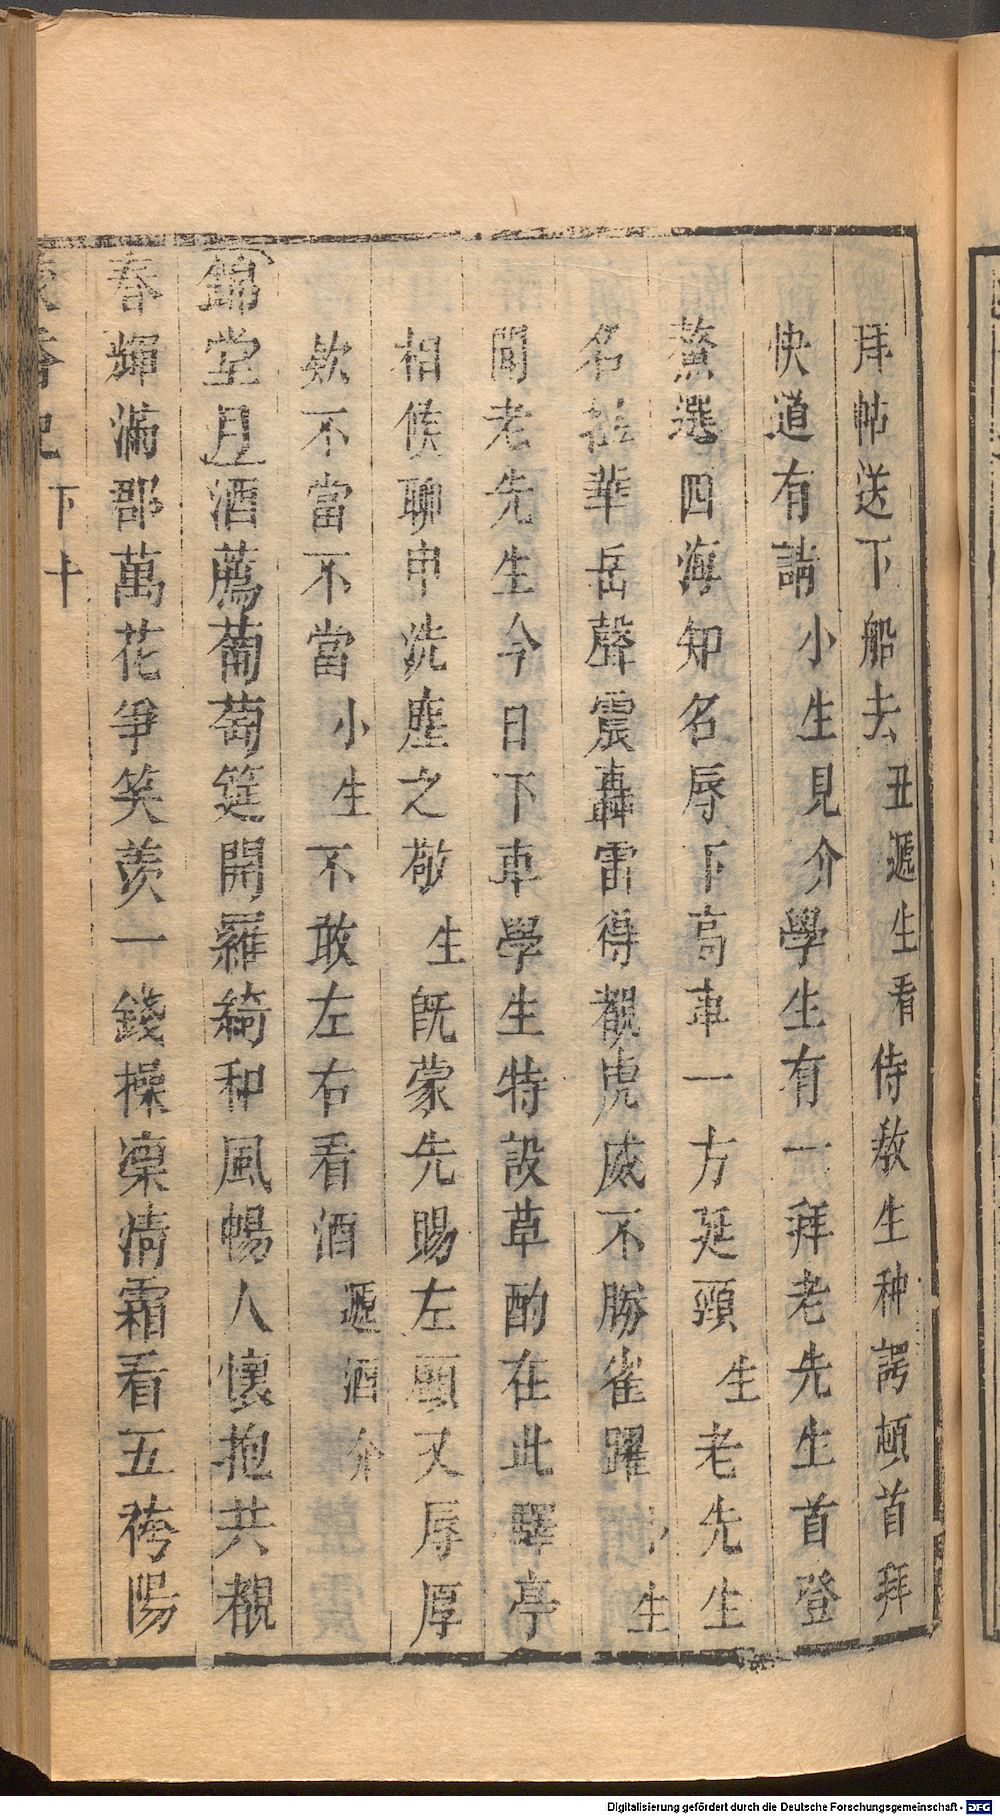 拜帖送下船去丑遞生看侍教生种諤頓首拜
快道有請小生見介學生有一拜老先生首登
鰲選四海知名辱下高車一方延頸生老先生
名拡華岳聲震轟雷得覩虎威不勝雀躍小生
聞老先生今日下車學生特設草酌在此驛亭
相候聊申洗塵之敬生旣蒙先賜左顧又辱厚
欵不當不當小生不敢左右看酒遞酒介
錦堂月酒薦葡萄筵開羅綺和風暢人懷抱共覩
春輝滿郡萬花爭笑羨一錢操凜淸霜看五袴陽
香記 下 十
Digitalisierung gefördert durch die Deutsche Forschungsgemeinschaft - DFG